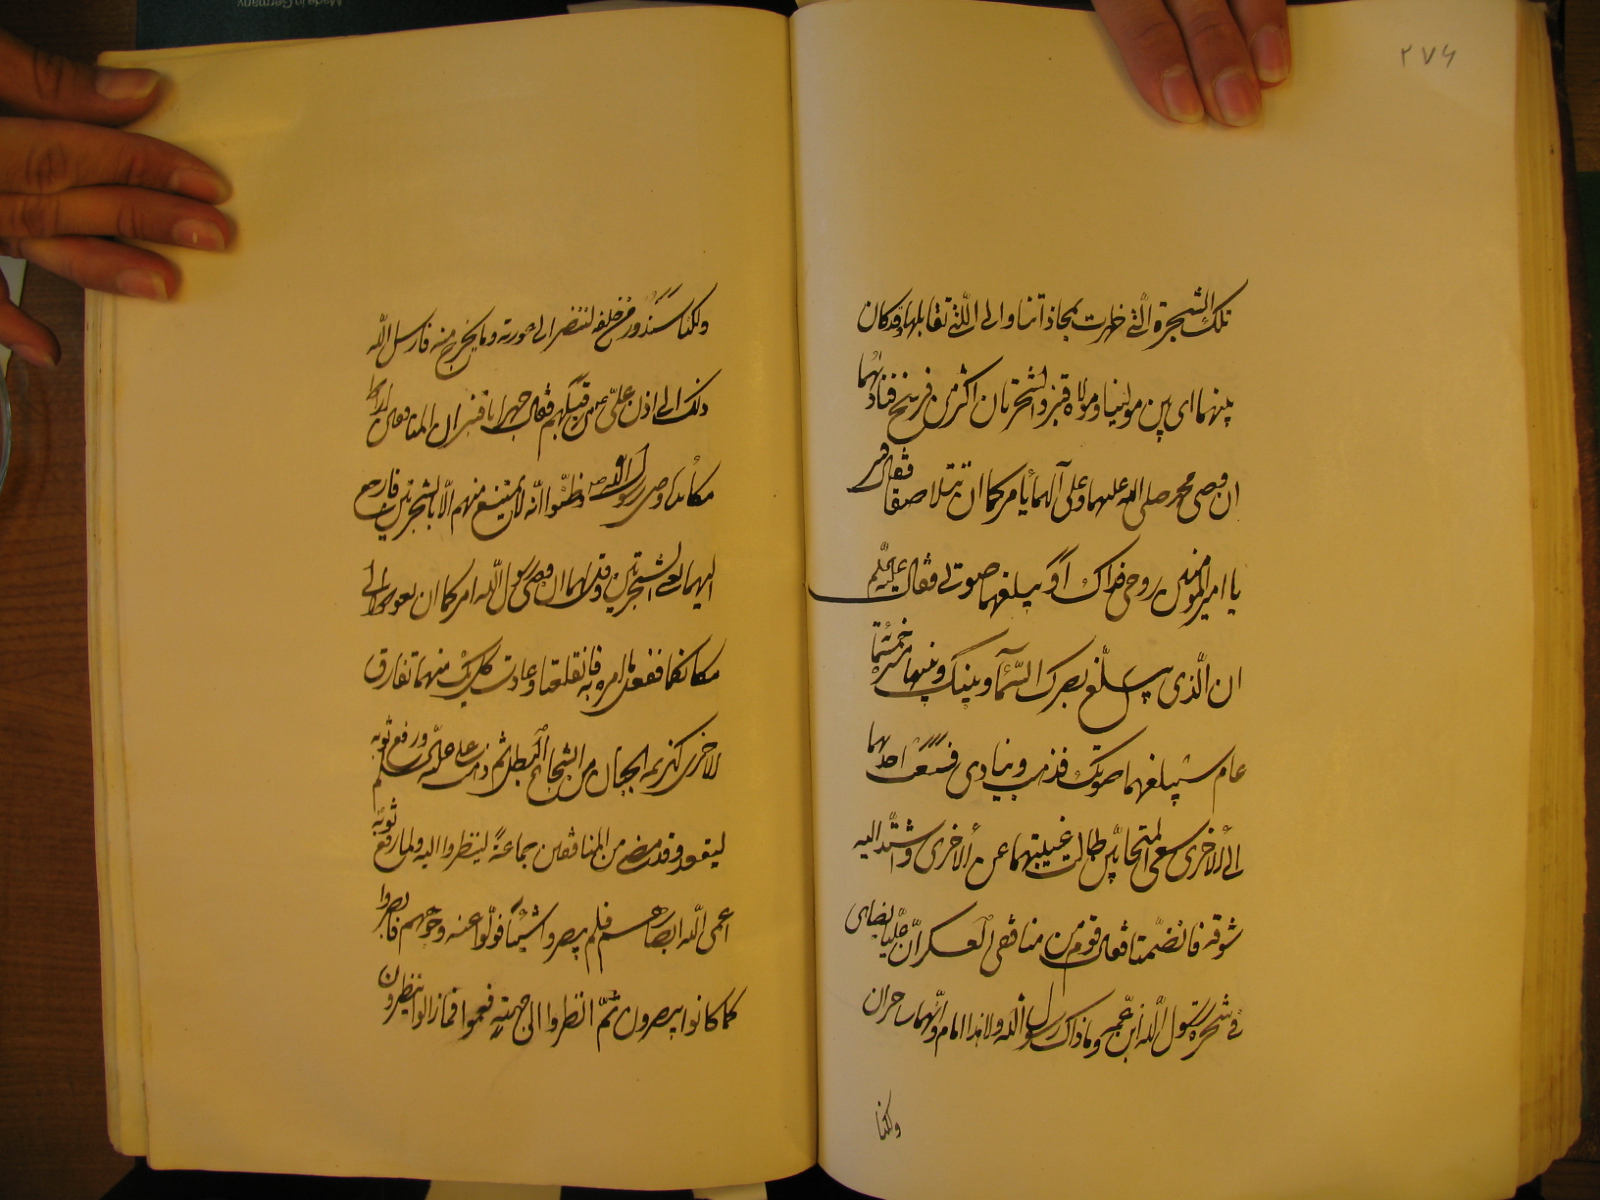 ۲۷۶
تلك الشجرة الّتی ظهرت بمحاذاتنا والی اللّتی تقابلها وقد كان
بینهما ای بین مولینا ومولاه قنبر والشجرتان اكثر من فرسخ فنادهما
ان وصی محمد صلی الله علیهما وعلی آلهما یأمركما ان تتلاصقا فقال قنبر
یا امیر المؤمنین روحی فداك اَوَ یبلغهما صوتی فقال علیه السّلم
ان الّذی یبلّغ بصرك السّمآء وبینك وبینها مسیرة خمسمأة
عام سیبلغهما صوتك فذهب وینادی فسعت احدهما
الی الأخری سعی المتحابّین طالت غیبتهما عن الأخری واشتدّ الیه
شوقه فانضمتا فقال قوم من منافقی العسكر انّ علیّا یضاهی
فی سحره رسول اللّه ابن عمّه وما ذاك رسول اللّه ولا هذا امام وانّهما ساحران
ولكنا
ولكنا سندور من خلفه لننضر الی عورته وما یخرج منه فارسل اللّه
ذلك الی اذن علیّ من قبلهم فقال جهرا یا قنبر ان المنافقین ارادوا
مكایدة وصی رسول الله وظنّوا انّه لا یمتنع منهم الّا بالشجرتین فارجع
الیهما یعنی الشجرتین وقل لهما ان وصی رسول اللّه امركما ان تعودا الی
مكانكما ففعل ما امره به فانقلعتا وعادت كل منهما تفارق
الاخری كهزیمة الجبان من الشجاع البطل ثم ذهب علیّ علیه السلم ورفع ثوبه
لیقعد وقد مضی من المنافقین جماعة لینظروا الیه ولما رفع ثوبه
اعمی اللّه ابصارهم فلم یبصروا شیئا فولّوا عنه وجوههم فابصروا
كما كانوا یبصرون ثمّ انظروا الی جهته فعموا فمازالوا ینظرون